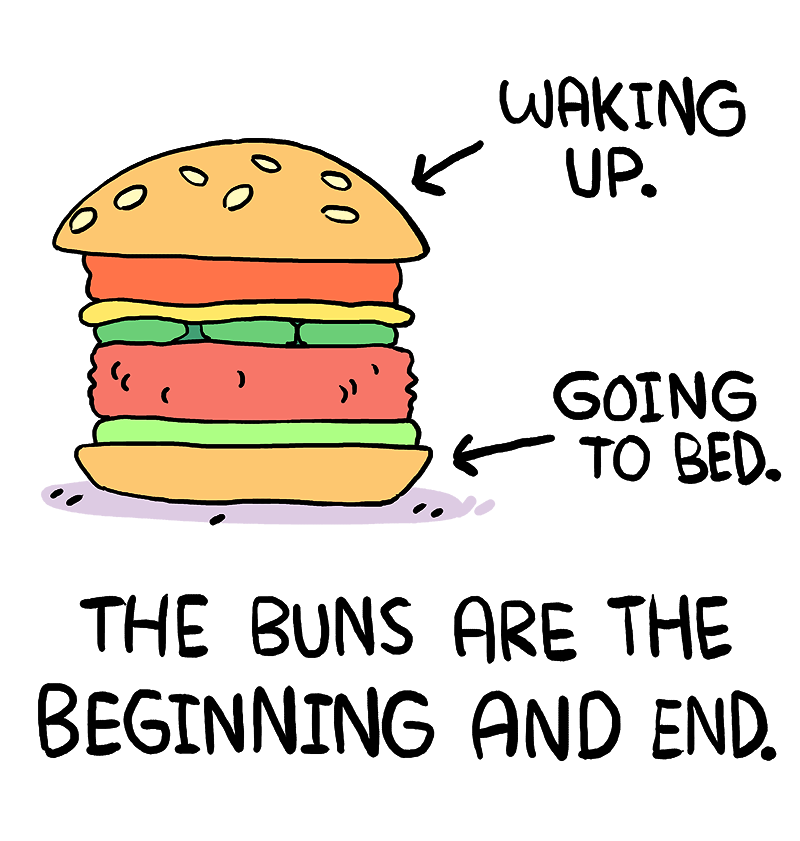 WAKING
UP.
GOING
TO BED.
THE BUNS ARE THE
BEGINNING AND END.